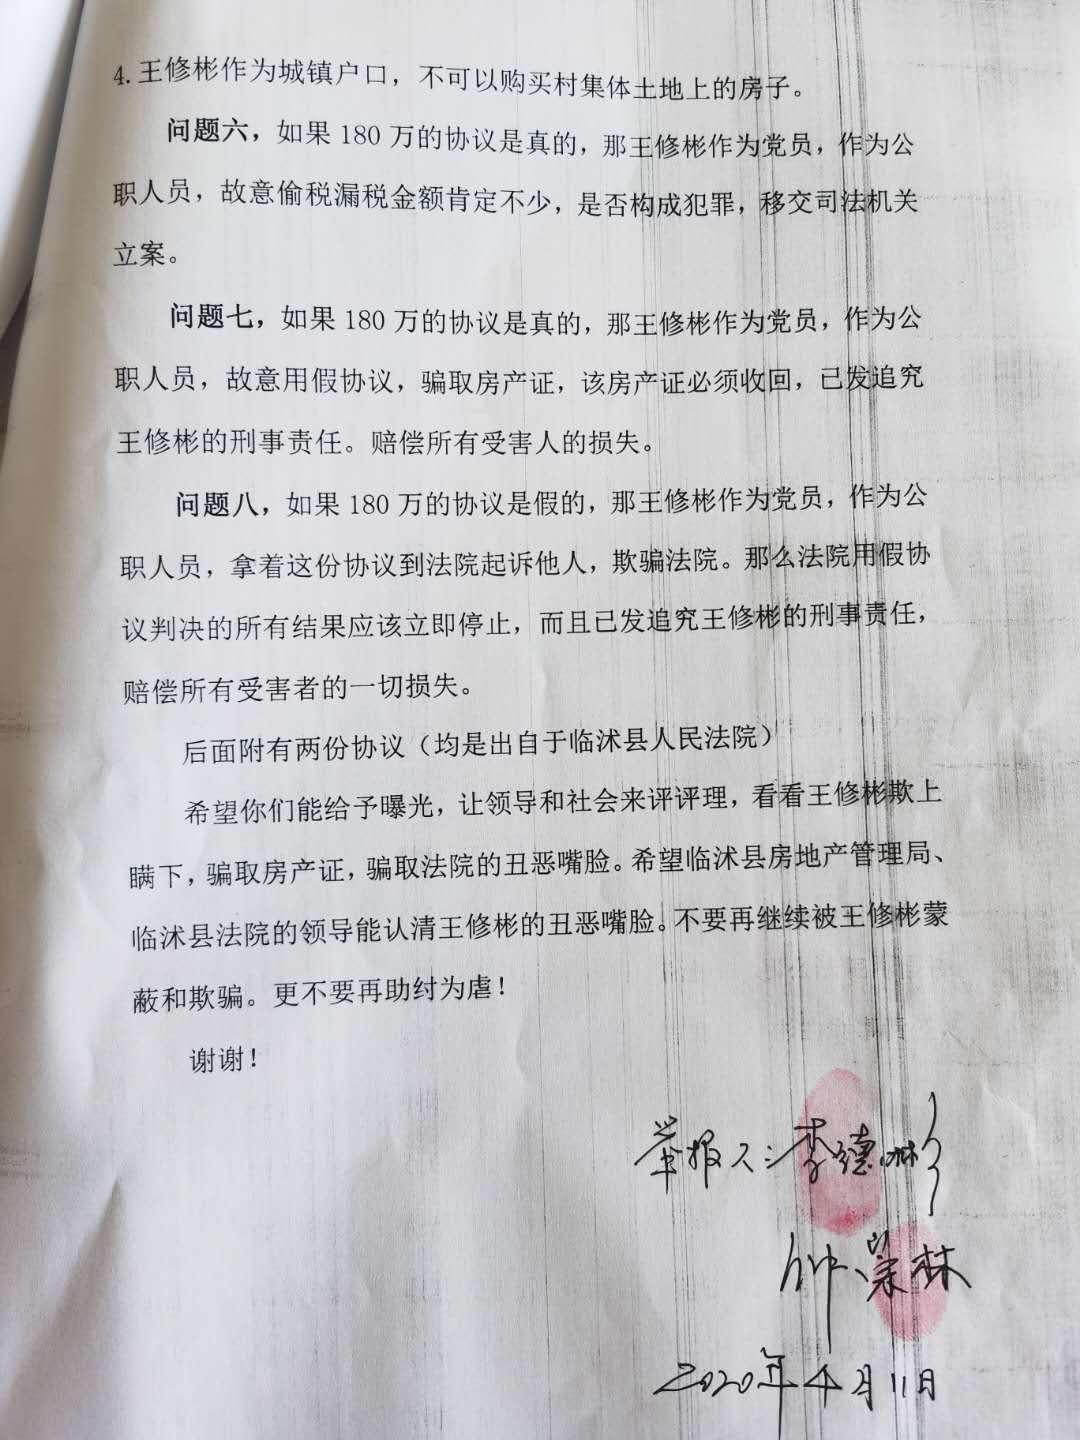 4.王修彬作为城镇户口，不可以购买村集体土地上的房子。
问题六，如果 180 万的协议是真的，那王修彬作为党员，作为公
职人员，故意偷税漏税金额肯定不少，是否构成犯罪，移交司法机关
立案。
问题七，如果 180 万的协议是真的，那王修彬作为党员，作为公
职人员，故意用假协议，骗取房产证，该房产证必须收回，已发追究
王修彬的刑事责任。赔偿所有受害人的损失。
问题八，如果 180 万的协议是假的，那王修彬作为党员，作为公
职人员，拿着这份协议到法院起诉他人，欺骗法院。那么法院用假协
议判决的所有结果应该立即停止，而且已发追究王修彬的刑事责任，
赔偿所有受害者的一切损失。
后面附有两份协议（均是出自于临沭县人民法院）
希望你们能给予曝光，让领导和社会来评评理，看看王修彬欺上
瞒下，骗取房产证，骗取法院的丑恶嘴脸。希望临沭县房地产管理局、
临沭县法院的领导能认清王修彬的丑恶嘴脸。不要再继续被王修彬蒙
蔽和欺骗。更不要再助纣为虐！
谢谢！
举报人：李德彬
林
2020年4月11日